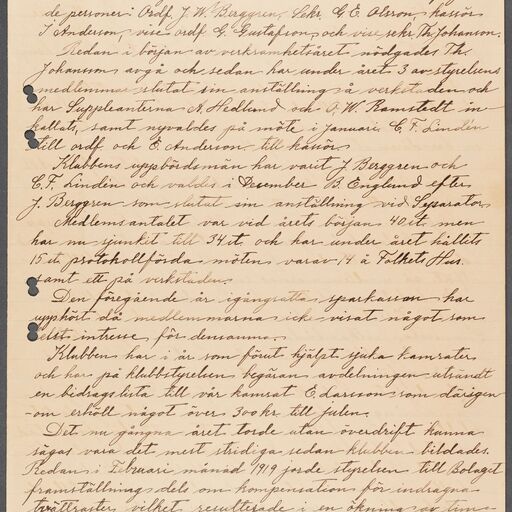 de personer: Ordf. J. W. Berggren, Sekr. G. E. Olsson, kassör
J. Anderson, vice ordf G. Gustafson och vice sekr. Th. Johanson.
Redan i början av verksamhetsåret nödgades Th.
Johansson avgå och sedan har under året 3 av styrelsens
medlemmar slutat sin anställning å verkstaden och
har Suppleanterna A. Hedlund och A. W. Ramstedt in-
kallats, samt nyvaldes på möte i januari C. F. Lindén
till ordf och E. Anderson till kassör.
Klubbens uppbördsmän har varit J. Berggren och
C. F. Lindén och valdes i December B. Englund efter
J. Berggren som slutat sin anställning vid Separator.
Medlemsantalet var vid årets början 40 st. men
har nu sjunkit till 34 st. och har under året hållits
15 st. protokollförda möten varav 14 å Folkets Hus.
samt ett på verkstaden.
Den föregående år igångsatta sparkassan har
upphört då medlemmarna icke visat något som
elst intresse för densamma.
Klubben har i år som förut hjälpt sjuka kamrater
och har på klubbstyrelsen begäran avdelningen utsändt
en bidragslista till vår kamrat E. Larsson som därigen-
om erhöll något över 300 kr till julen.
Det nu gångna året torde utan överdrift kunna
sägas vara det mest stridiga sedan klubben bildades.
Redan i Februari månad 1919 jorde styrelsen till Bolaget
framställning dels om kompensation för indragna
tvättraster vilket resulterade i en ökning av tim-